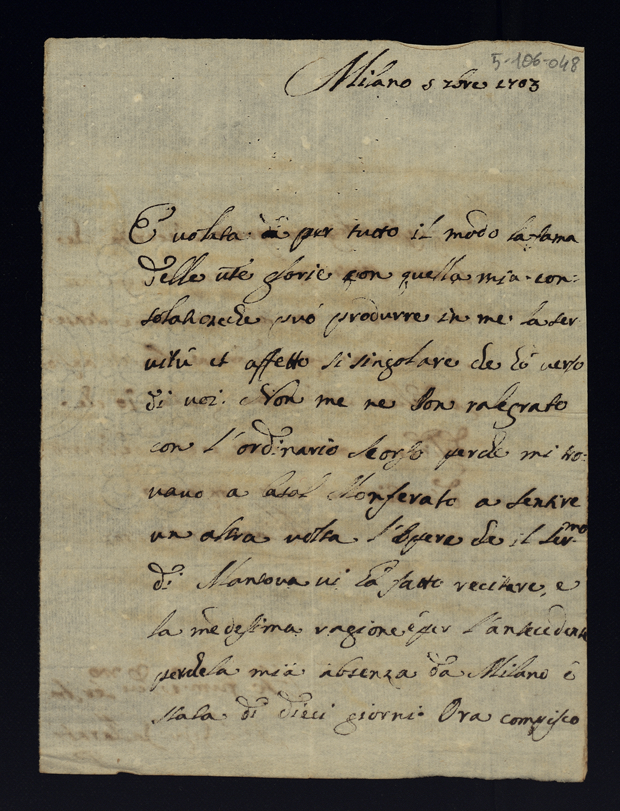 5-106-048
Milano 5 xbre 1703
E volata già per tutto il modo la fama
delle vre glorie con quella mia con-
solatione che può produrre in me la ser
vitù et affetto si singolare che hò verso
di voi. Non me ne son ralegrato
con l'ordinario scorso perche mi tro-
vavo a Casal Monferato a sentire
un altra volta l'Opere che il Sermo
di Mantova vi hà fatto recitare, e
la medesima ragione è per l'antecedente
perche la mia absenza da Milano è
stata di dieci giorni. Ora compisco